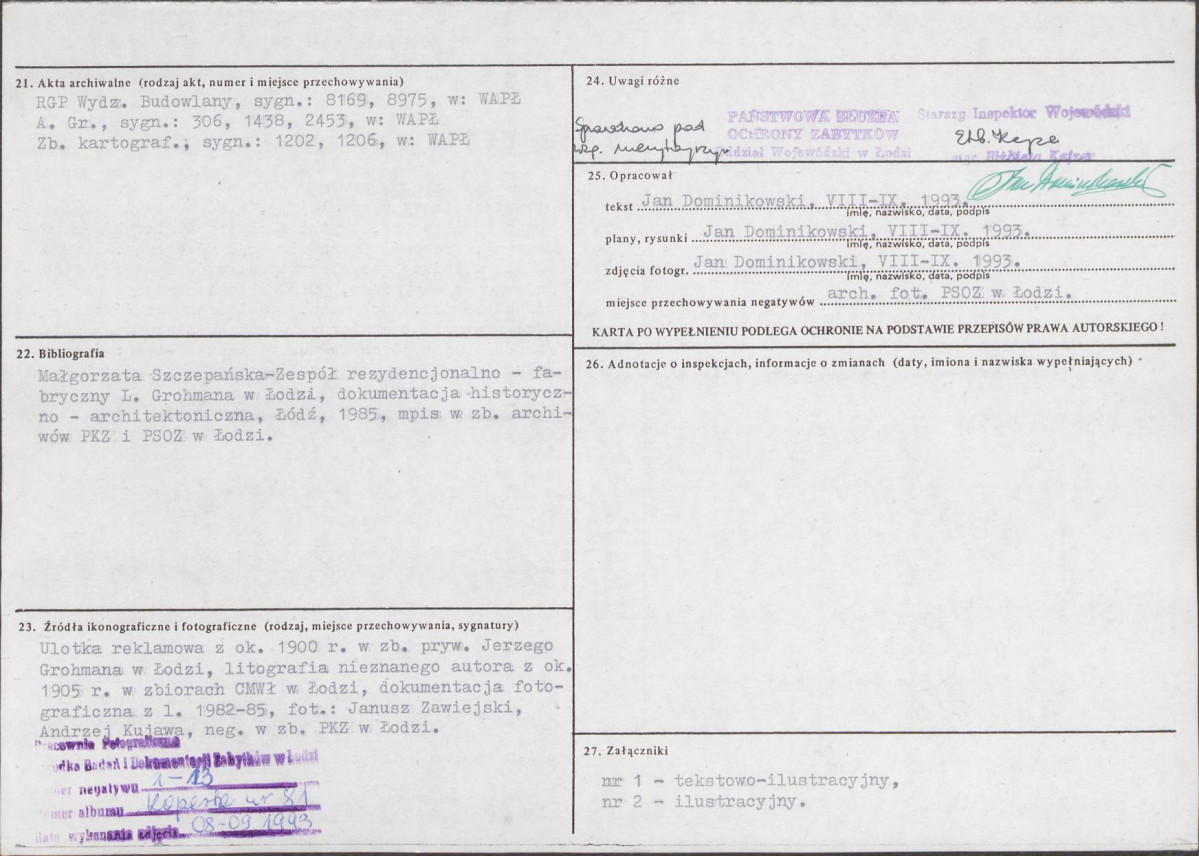 21. Akta archiwalne (rodzaj akt, numer i miejsce przechowywania)
RGP Wydz. Budowlany, sygn.: 8169, 8975, w: WAPŁ
A. Gr., sygn.: 306, 1438, 2453, w: WAPŁ
Zb. kartograf., sygn.: 1202, 1206, w: WAPŁ
22. Bibliografia
Małgorzata Szczepańska-Zespół rezydencjonalno - fa-
bryczny L. Grohmana w Łodzi, dokumentacja historycz-
no - architektoniczna, Łódź, 1985, mpis w zb. archi-
wów PKZ i PSOZ w Łodzi.
23. Źródła ikonograficzne i fotograficzne (rodzaj, miejsce przechowywania, sygnatury)
Ulotka reklamowa z ok. 1900 r. w zb. pryw. Jerzego
Grohmana w Łodzi, litografia nieznanego autora z ok.
1905 r. w zbiorach CMWŁ w Łodzi, dokumentacja foto-
graficzna z l. 1982-85, fot.: Janusz Zawiejski,
Andrzej Kujawa, neg. w zb. PKZ w Łodzi.
Pracownia Fotograficzna
odka Badań i Dokumentacji Zabytków w Łodzi
er negatywu 1-13
mer albumu Koperta nr 81
data wykonania zdjęcia 08-09 1993
24. Uwagi różne
Sprawdzono pod
wzp. merytoryczn
PAŃSTWOWA SŁUŻBA
OCHRONY ZABYTKÓW
Oddział Wojewódzki w Łodzi
Starszy Inspektor Wojewódzki
mgr Elżbieta
25. Opracował
tekst Jan Dominikowski, VIII-IX. 1993.
imię, nazwisko, data, podpis
plany, rysunki Jan Dominikowski, VIII-IX. 1993.
imię, nazwisko, data, podpis
zdjęcia fotogr. Jan Dominikowski, VIII-IX. 1993.
imię, nazwisko, data, podpis
miejsce przechowywania negatywów arch. fot. PSOZ w Łodzi.
KARTA PO WYPEŁNIENIU PODLEGA OCHRONIE NA PODSTAWIE PRZEPISÓW PRAWA AUTORSKIEGO !
26. Adnotacje o inspekcjach, informacje o zmianach (daty, imiona i nazwiska wypełniających)
27. Załączniki
nr 1 - tekstowo-ilustracyjny,
nr 2 - ilustracyjny.